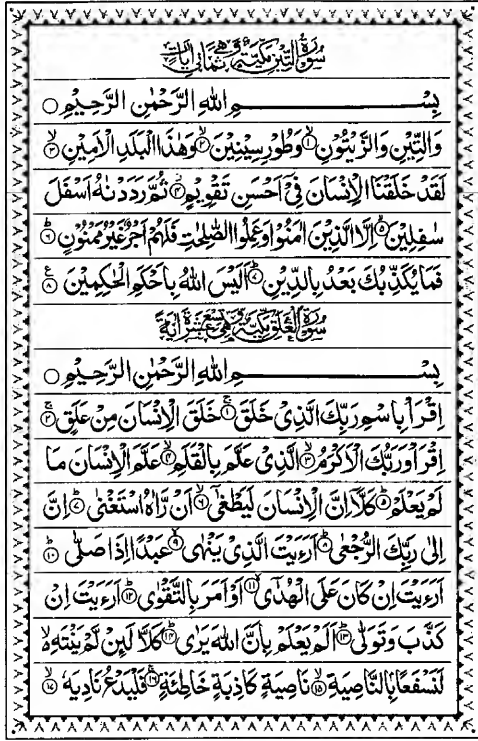 سُوۡرَةُ التِّيۡنِ مَكِّيَّةٌ وَّهِيَ ثَمَانِيۡ اٰيَاتٍ
بِسۡمِ اللّٰهِ الرَّحۡمٰنِ الرَّحِيۡمِ ○
وَالتِّيۡنِ وَالزَّيۡتُوۡنِ ۙ﴿۱﴾ وَطُوۡرِ سِيۡنِيۡنَ ۙ﴿۲﴾ وَهٰذَا الۡبَلَدِ الۡاَمِيۡنِ ۙ﴿۳﴾
لَقَدۡ خَلَقۡنَا الۡاِنۡسَانَ فِيۡۤ اَحۡسَنِ تَقۡوِيۡمٍ ۫﴿۴﴾ ثُمَّ رَدَدۡنٰهُ اَسۡفَلَ
سٰفِلِيۡنَ ۙ﴿۵﴾ اِلَّا الَّذِيۡنَ اٰمَنُوۡا وَعَمِلُوا الصّٰلِحٰتِ فَلَهُمۡ اَجۡرٌ غَيۡرُ مَمۡنُوۡنٍ ؕ﴿۶﴾
فَمَا يُكَذِّبُكَ بَعۡدُ بِالدِّيۡنِ ؕ﴿۷﴾ اَلَيۡسَ اللّٰهُ بِاَحۡكَمِ الۡحٰكِمِيۡنَ ﴿۸﴾ ع
سُوۡرَةُ الۡعَلَقِ مَكِّيَّةٌ وَّهِيَ تِسۡعَ عَشۡرَةَ اٰيَةً
بِسۡمِ اللّٰهِ الرَّحۡمٰنِ الرَّحِيۡمِ ○
اِقۡرَاۡ بِاسۡمِ رَبِّكَ الَّذِيۡ خَلَقَ ۚ﴿۱﴾ خَلَقَ الۡاِنۡسَانَ مِنۡ عَلَقٍ ۚ﴿۲﴾
اِقۡرَاۡ وَرَبُّكَ الۡاَكۡرَمُ ۙ﴿۳﴾ الَّذِيۡ عَلَّمَ بِالۡقَلَمِ ۙ﴿۴﴾ عَلَّمَ الۡاِنۡسَانَ مَا
لَمۡ يَعۡلَمۡ ؕ﴿۵﴾ كَلَّاۤ اِنَّ الۡاِنۡسَانَ لَيَطۡغٰۤى ۙ﴿۶﴾ اَنۡ رَّاٰهُ اسۡتَغۡنٰى ؕ﴿۷﴾ اِنَّ
اِلٰى رَبِّكَ الرُّجۡعٰى ؕ﴿۸﴾ اَرَءَيۡتَ الَّذِيۡ يَنۡهٰى ۙ﴿۹﴾ عَبۡدًا اِذَا صَلّٰى ؕ﴿۱۰﴾
اَرَءَيۡتَ اِنۡ كَانَ عَلَى الۡهُدٰٓى ۙ﴿۱۱﴾ اَوۡ اَمَرَ بِالتَّقۡوٰى ؕ﴿۱۲﴾ اَرَءَيۡتَ اِنۡ
كَذَّبَ وَتَوَلّٰى ؕ﴿۱۳﴾ اَلَمۡ يَعۡلَمۡ بِاَنَّ اللّٰهَ يَرٰى ؕ﴿۱۴﴾ كَلَّا لَئِنۡ لَّمۡ يَنۡتَهِ ۙ
لَنَسۡفَعًۢا بِالنَّاصِيَةِ ۙ﴿۱۵﴾ نَاصِيَةٍ كَاذِبَةٍ خَاطِئَةٍ ۚ﴿۱۶﴾ فَلۡيَدۡعُ نَادِيَهٗ ۙ﴿۱۷﴾